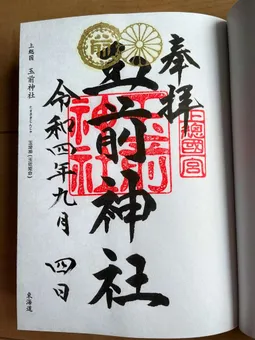 奉拝
上總國一宮
玉前神社
玉前神社
令和四年九月四日
上総国 玉前神社
東海道